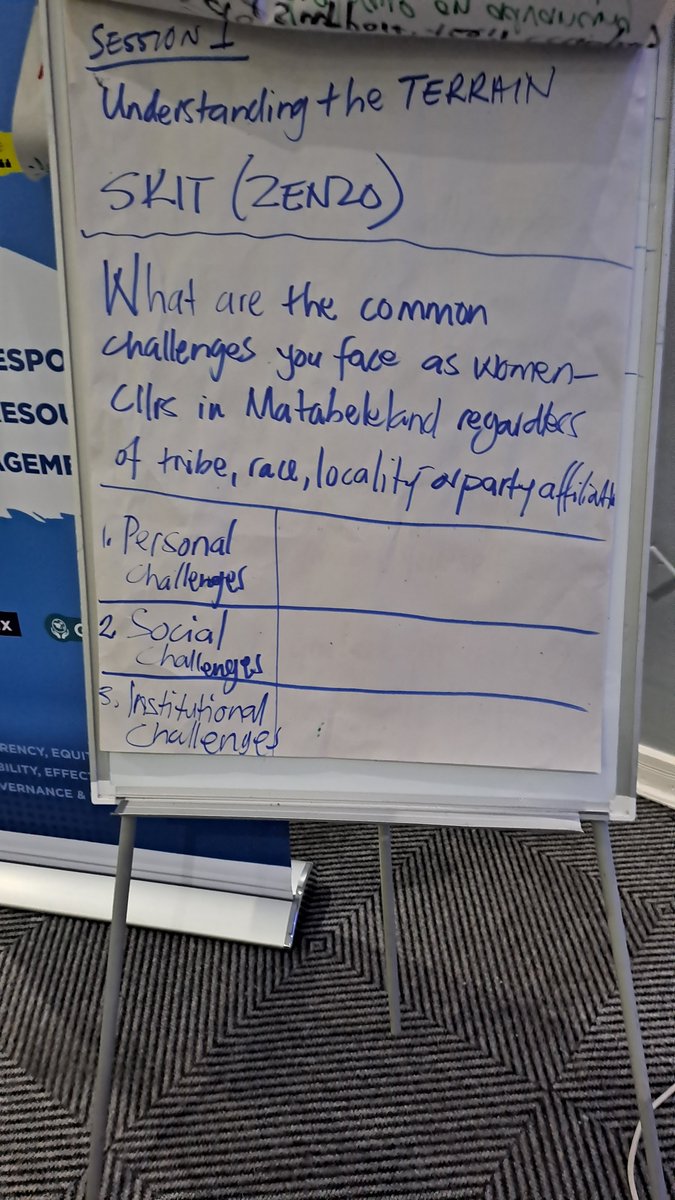 SESSION 1
Understanding the TERRAIN
SKIT (ZENZO)
What are the common
challenges you face as women-
Cllrs in Matabeleland regardless
of tribe, race, locality or party affiliatn
1. Personal
challenges
2. Social
challenges
3. Institutional
challenges
ESPO
ESOU
AGEME
X
RENCY, EQUIT
BILITY, EFFEC
VERNANCE &